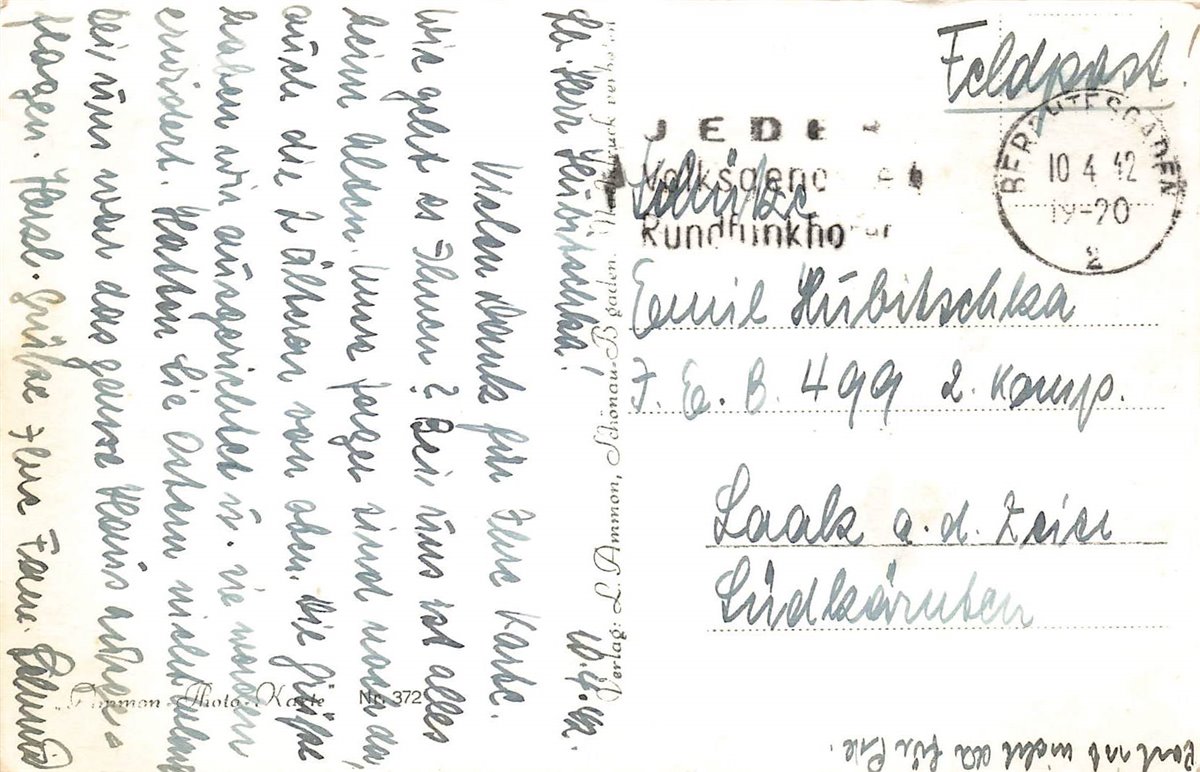 Feldpost!
BERCHTESGADEN
10 4 42
19-20
2
JEDER
Volksgenosse
Rundfunkhörer
Schütze
Emil Hubitschka
J. E. B. 499 2. Komp.
Laak a. d. Zeier
Südkärnten
Verlag: L. Ammon, Schönau-B'gaden.
"Ammon-Photo-Karte" Nr. 372
10.4.42.
Lb. Herr Hubitschka!
Vielen Dank für Ihre Karte.
Wie geht es Ihnen? Bei uns ist alles
beim alten. Unsre sind noch da,
auch die 2 älteren von oben. Die Grüße
haben wir ausgerichtet u. sie werden
erwidert. Hatten Sie Ostern
bei uns war das ganze Haus
Herzl. Grüße Ihre Fam.
ist nicht da für Sie.